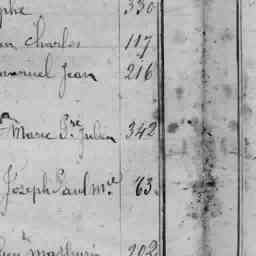 phe 330
an Charles 117
manuel Jean 216
Marc Pre Julien 342
Joseph Paul Mie 63
Mathurin 202